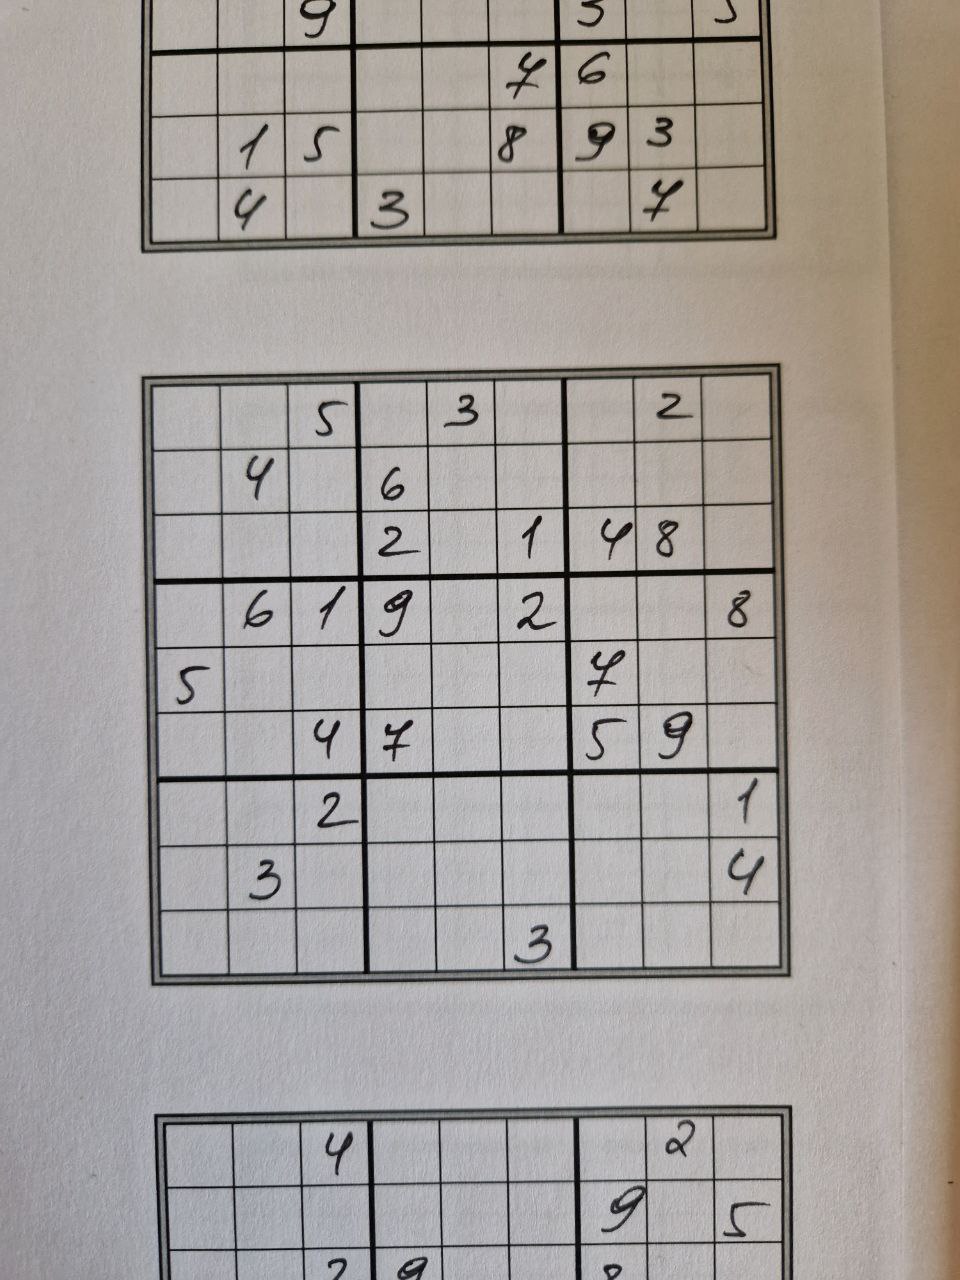 9 3 5
7 6
1 5 8 9 3
4 3 7
5 3 2
4 6
2 1 4 8
6 1 9 2 8
5 7
4 7 5 9
2 1
3 4
3
4 2
9 5
2 9 8